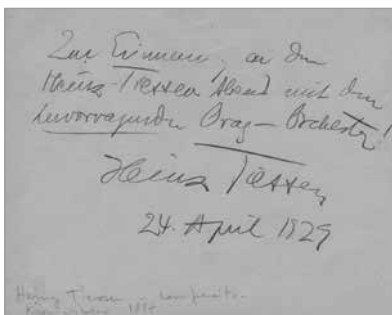 Zur Erinnerung an den
Heinz-Tiessen Abend mit dem
hervorragenden Orag-Orchester!
Heinz Tiessen
24. April 1929